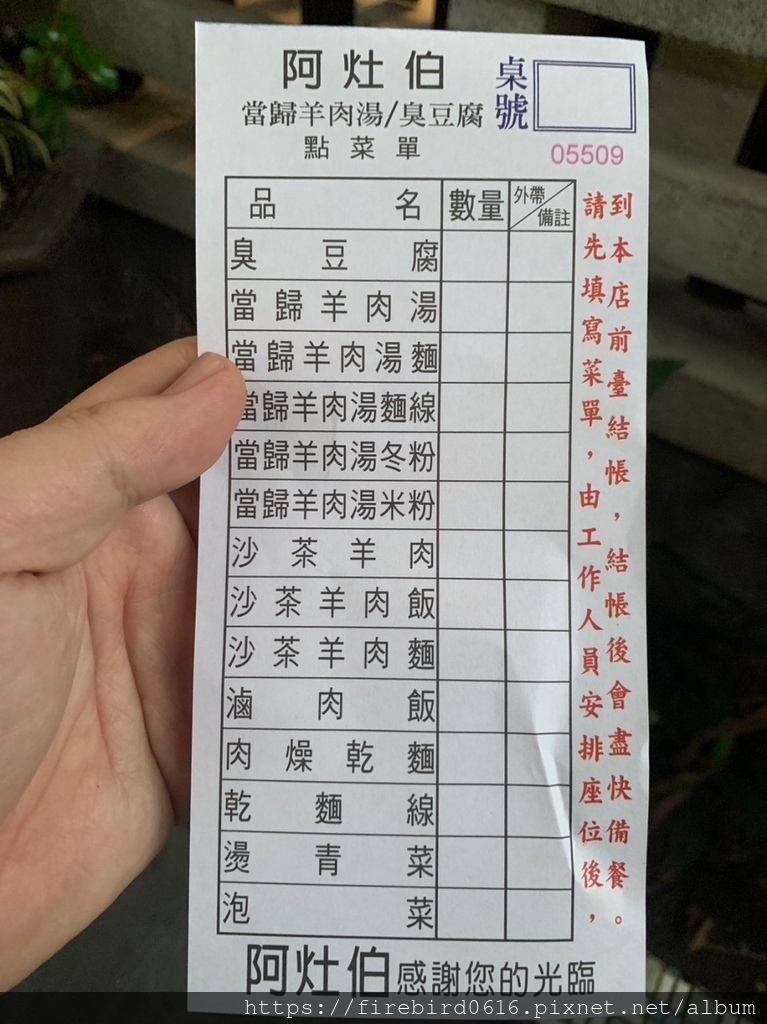 阿灶伯
當歸羊肉湯/臭豆腐
點菜單
桌號
05509
品名 數量 外帶/備註
臭豆腐
當歸羊肉湯
當歸羊肉湯麵
當歸羊肉湯麵線
當歸羊肉湯冬粉
當歸羊肉湯米粉
沙茶羊肉
沙茶羊肉飯
沙茶羊肉麵
滷肉飯
肉燥乾麵
乾麵線
燙青菜
泡菜
請先填寫菜單，由工作人員安排座位後，
到本店前臺結帳，結帳後會盡快備餐。
阿灶伯感謝您的光臨
https://firebird0616.pixnet.net/album